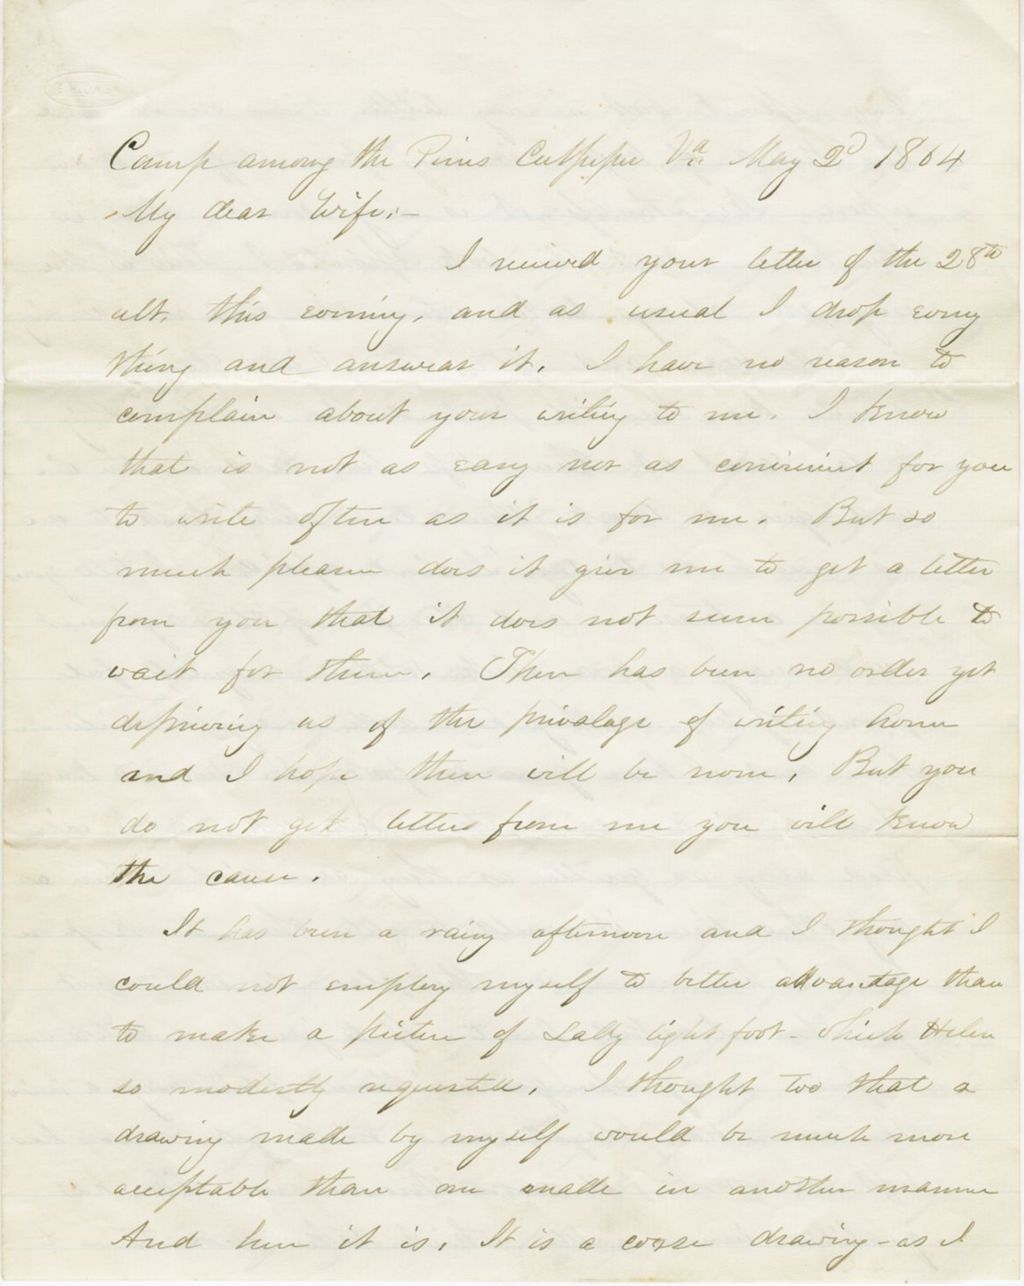 Camp among the Pines Culpeper Va May 2d 1864
My dear Wife:—
I received your letter of the 28th
ult. this evening, and as usual I drop every
thing and answear it. I have no reason to
complain about your writing to me. I know
that is not as easy nor as convenient for you
to write often as it is for me. But so
much pleasure does it give me to get a letter
from you that it does not seem possible to
wait for them. There has been no order yet
depriving us of the privalage of writing home
and I hope there will be none, But you
do not get letters from me you will know
the cause.
It has been a rainy afternoon and I thought I
could not employ myself to better advantage than
to make a picture of Lady light foot - which Helen
so modestly requested. I thought too that a
drawing made by myself would be much more
acceptable than one made in another manner
And here it is. It is a corse drawing - as I